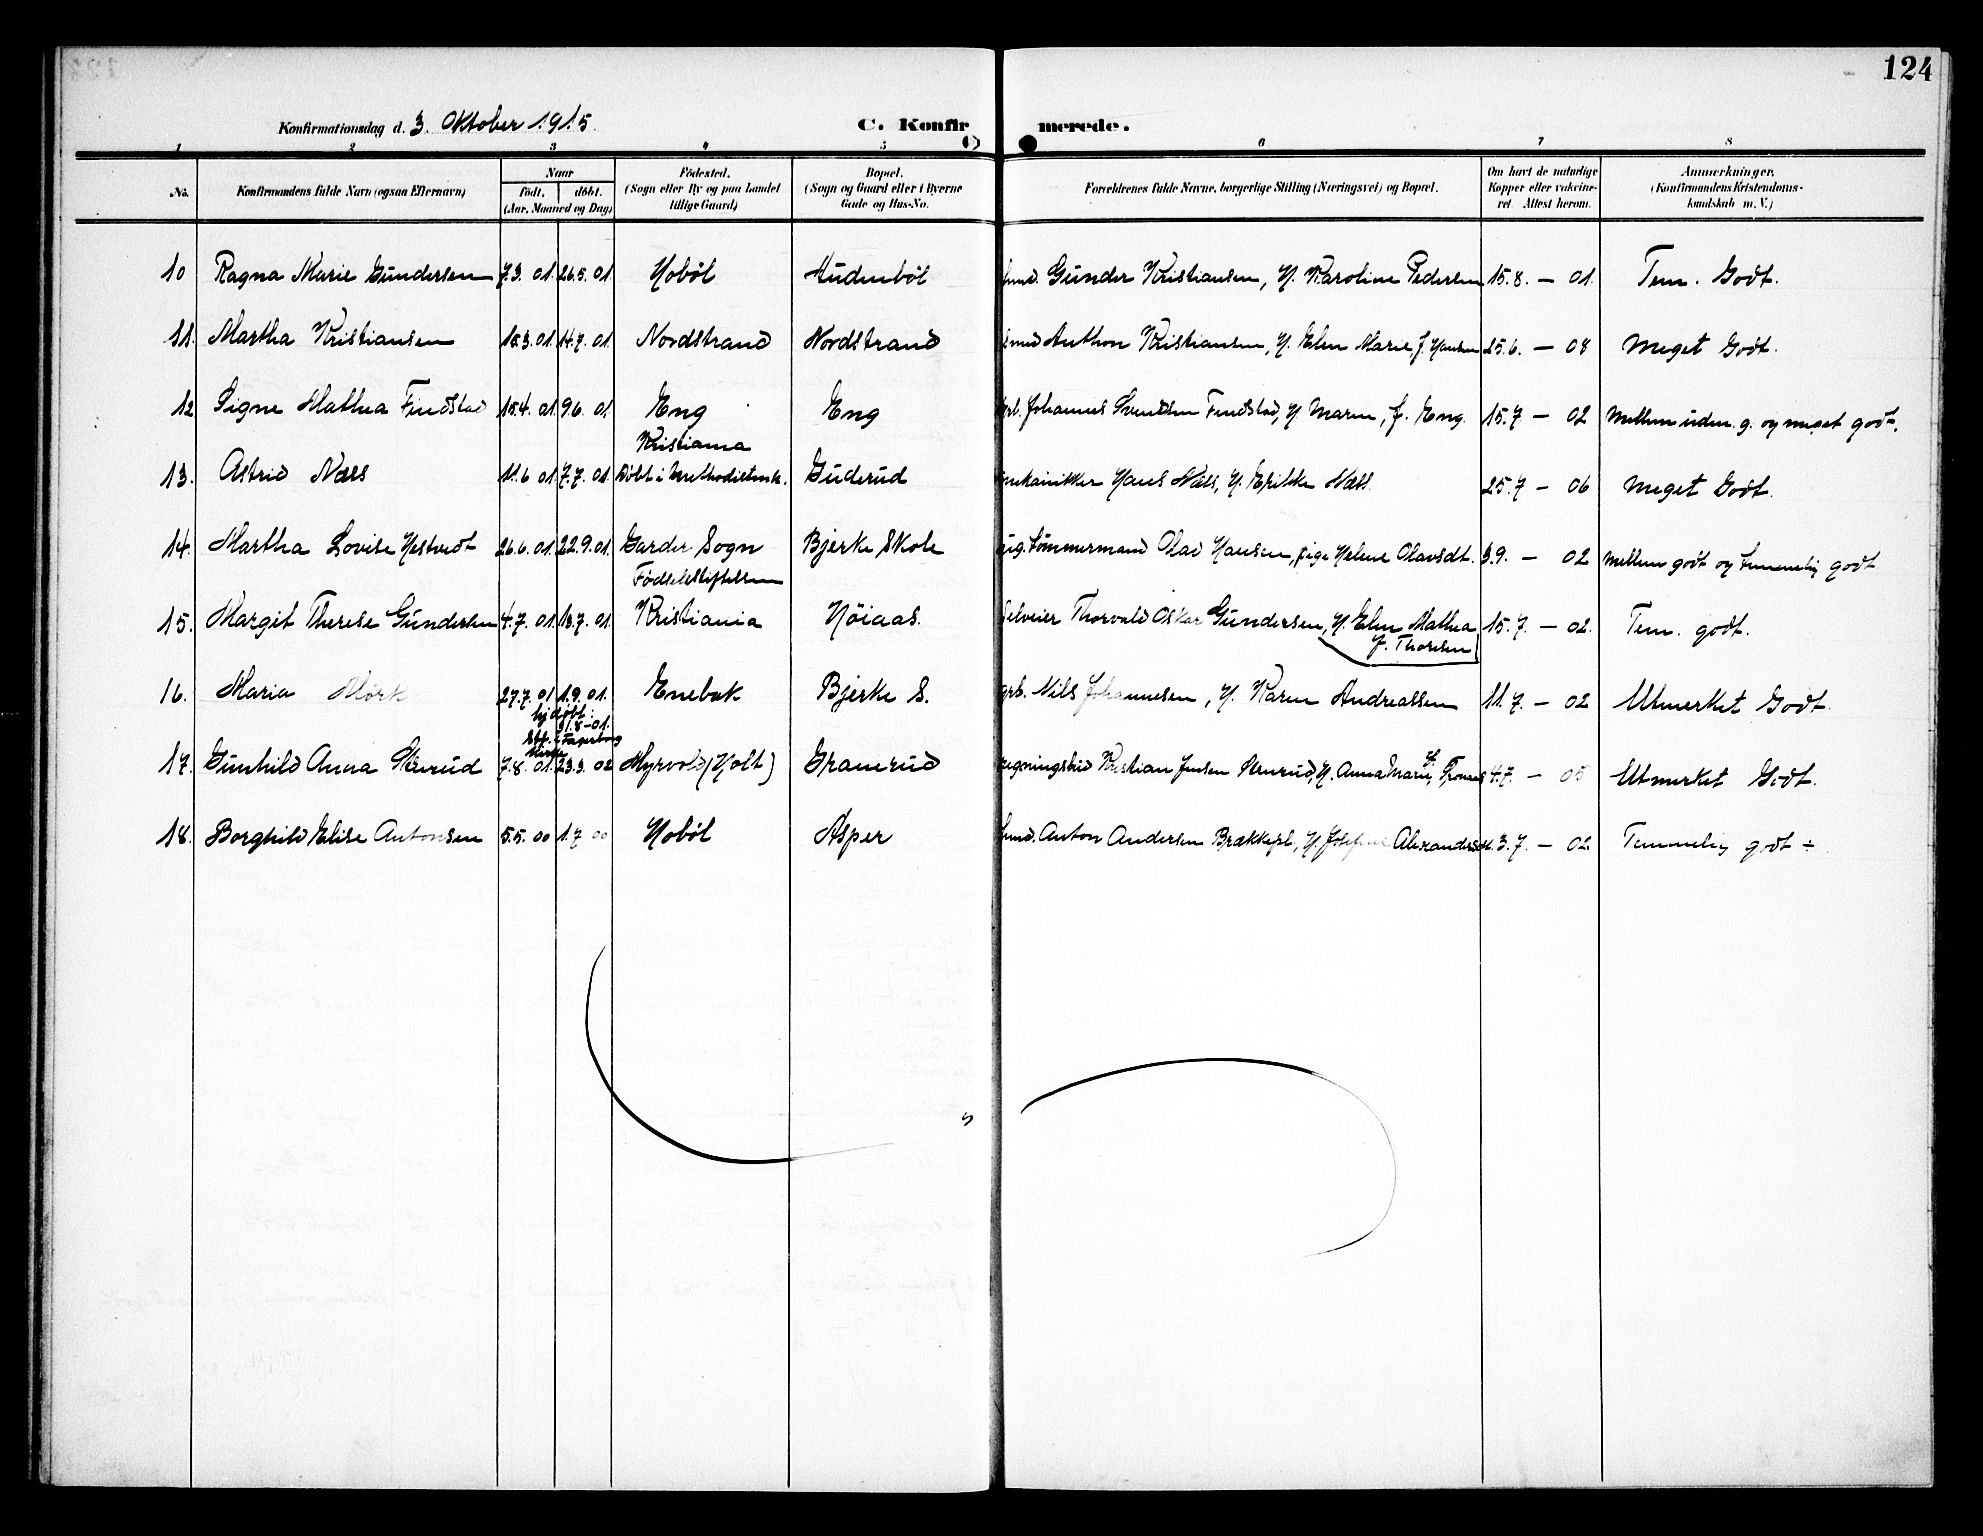 124
Konfirmationsdag d. 3. Oktober 1915.
C. Konfirmerede.
1 2 3 4 5 6 7 8
No. Konfirmandens fulde Navn (ogsaa Efternavn) Naar födt. döbt. (Aar, Maaned og Dag) Födested. (Sogn eller By og paa Landet tillige Gaard) Bopæl. (Sogn og Gaard eller i Byerne Gade og Hus-No. Forældrenes fulde Navne, borgerlige Stilling (Næringsvei) og Bopæl. Om havt de naturlige Kopper eller vakcineret. Attest herom. Anmerkninger. (Konfirmandens Kristendomskundskab m. V.)
10 Ragna Marie Gundersen 7.3. 01. 26.5. 01. Hobøl Hudenbøl Gunder Kristiansen, H. Karoline Pedersen 15.8. — 01. Tem. Godt.
11. Martha Kristiansen 18.3. 01. 14.7. 01. Nordstrand Nordstrand Anthon Kristiansen, H. Elen Marie, f. Hansen 25.6. — 08 Meget Godt.
12 Signe Mathea Findstad 15.4. 01. 9.6. 01. Eng Eng Johannes Svendsen Findstad, H. Maren, f. Eng. 15.7 — 02 Mellem uden. g. og meget godt.
13. Astrid Næss 11.6 01. 7.7. 01. Kristiania Døbt i Methodistmk. Guderud mekanikker Hans Næss, H. Erikke Næss 25.7 — 06 Meget Godt.
14. Martha Lovise Hestvedt 26.6. 01. 22.9. 01. Garder Sogn Bjerke Skole ug. Tømmermand Olad Hansen, pige Helene Olavsdt. 3.9. — 02 mellem godt og temmelig godt
15. Margit Therese Gundersen 4.7. 01. 13.7. 01. Fødselsstiftelsen Kristiania Høiaas. Selveier Thorvald Oskar Gundersen, H. Elen Mathea f. Thoresen 15.7. — 02. Tem. godt.
16. Maria Mørk 27.7. 01 1.9. 01. Enebak Bjerke S. grb. Nils Johannesen, H. Karen Andreassen 11.7. — 02 Utmerket Godt.
hjdøbt. 31.8-01.
Stf. i Fagerborg Kirke
17. Gunhild Anna Skerud 7.8. 01. 23.3. 02 Myrvold (Holt) Granerud Kristian Jensen Skerud, H. Anna Marie, f. 4.7. — 05 Utmerket Godt.
18. Borghild Elise Antonsen 5.5. 00 1.7 00 Hobøl Asper Anton Andersen Brækkepl., H. Josefine 3.7. — 02. Temmelig godt ÷